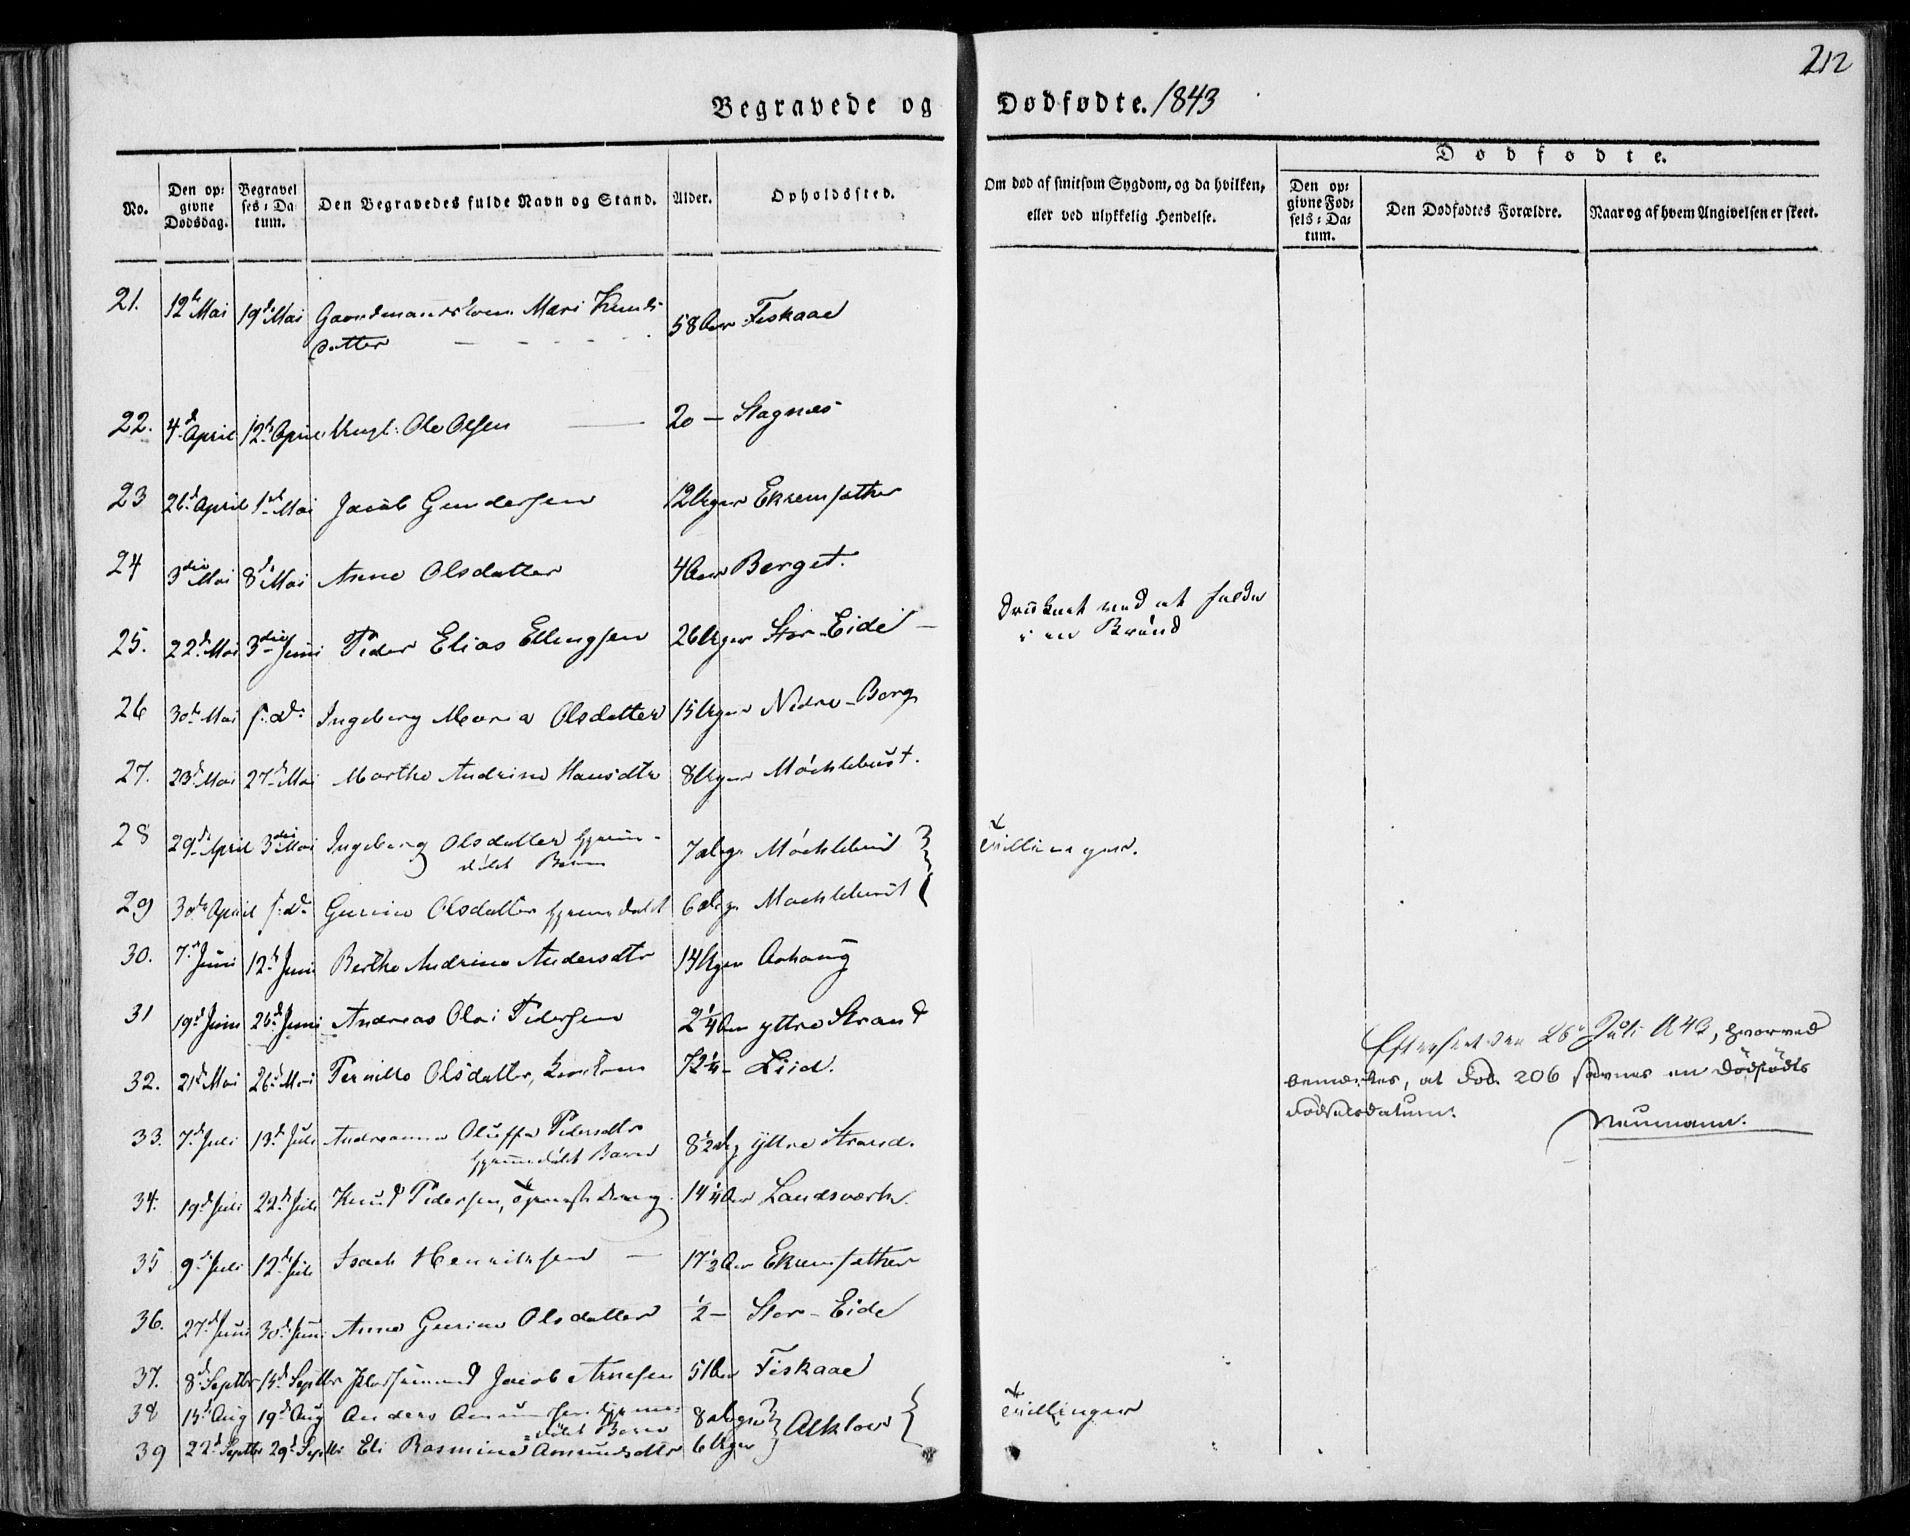 212
Begravede og Dødfødte. 1843
No.
Den opgivne Dødsdag.
Begravelses-Datum.
Den Begravedes fulde Navn og Stand.
Alder.
Opholdssted.
Om død af smitsom Sygdom, og da hvilken, eller ved ulykkelig Hendelse.
Dødfødte.
Den opgivne Fødsels-Datum.
Den Dødfødtes Forældre.
Naar og af hvem Angivelsen er skeet.
21. 12te Mai 19de Mai Gaardmandskone Mari Knuds 58 Aar Fiskaae
datter
22. 4de April 12te April Ungk: Ole Olsen 20 — Stagnæs
23 26de April 1ste Mai Jacob Gundersen 12 Uger Ekremsæther
24 3die Mai 8de Mai Anne Olsdatter 4 Aar Berget.
25. 22de Mai 3die Juni Peder Elias Ellingsen 26 Uger Stor-Eide — Druknet ved at falde
i en Brønd
26 30te Mai s: d: Ingeborg Maria Olsdatter 15 Uger Nedre-Berg
27. 23de Mai 27de Mai Marthe Andrine Hansdtr 8 Uger Møcklebust.
28 29de April 3die Mai Ingeborg Olsdatter hjemme- 7 Dage Møcklebust Tvillinger.
døbt Barn
29 30te April s: d: Gurine Olsdatter hjemmedøbt 6 Dage Møcklebust
30. 7de Juni 12te Juni Berthe Andrine Andersdtr 14 Uger Aahaug
31 19de Juni 26de Juni Andreas Olai Pedersen 2 1/4 Aar yttre Strand
32. 21de Mai 26de Mai Pernille Olsdatter, 72 1/4 — Liid.
33. 7de Juli 13de Juli Andreanna Oluffa Pedersdtr 8 1/2 Dag yttre Strand.
hjemmedøbt Barn
34. 19de Juli 22de Juli Knud Pedersen, Dreng 14 1/4 Aar Landsværk.
35 9de Juli 12te Juli Isach Henriksen — 17 1/2 Aar Ekremsæther
36. 27de Juni 30te Juni Anne Gurine Olsdatter 1/2 — Stor-Eide
37. 8de Septbr 15de Septbr Jacob Arnesen 51 Aar Fiskaae
38 15de Aug 19de Aug Anders Amundsen hjemme- 8 Dage Alklov Tvillinger
døbt Barn
39 22de Septbr 29de Septbr Eli Rasmine Amundsdtr 6 Uger
Efterseet den 26de Juli 1843, hvorved
bemærkes, at Fol. 206 savnes en Dødfødts
Fødselsdatum.
Neumann.